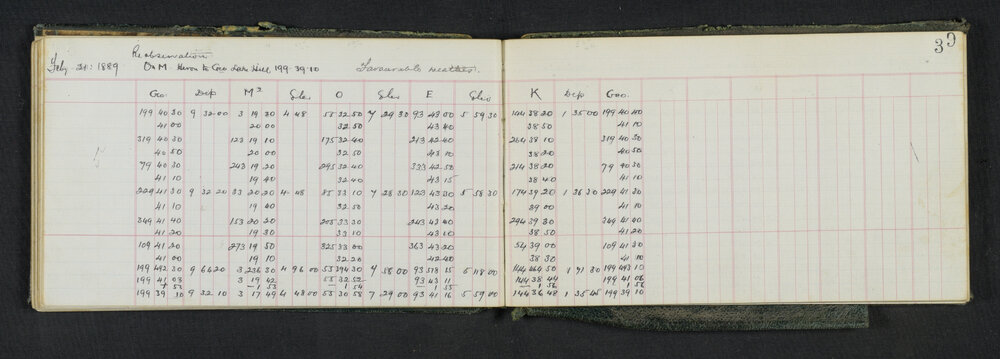 39
Reobservation
Feby. 21: 1889 On M. Heron to Geo Lake Hill 199.39.10 Favourable weather.
Geo. Dep M² Elev O Elev E Elev K Dep Geo.
199 40 30 9 32 00 3 19 30 4 48 55 32 50 7 29 30 93 43 00 5 59 30 144 38 20 1 35 00 199 40 40
41 00 20 00 32 50 43 40 38 50 41 10
319 40 30 123 19 10 175 32 40 213 42 40 264 38 10 319 40 30
40 50 20 00 32 50 43 10 38 20 40 50
79 40 30 243 19 20 295 32 40 333 42 50 38 20 79 40 30
41 10 19 40 32 40 43 15 38 40 41 10
229 41 30 9 32 20 33 20 20 4 48 85 33 10 7 28 30 123 43 30 5 58 30 174 39 20 1 36 30 229 41 30
41 10 19 40 32 50 43 20 39 00 41 10
349 41 40 153 20 20 205 33 30 243 43 40 294 39 30 349 41 40
41 20 19 30 33 10 43 10 38 50 41 20
109 41 20 273 19 50 325 33 00 363 43 20 54 39 00 109 41 30
41 00 19 10 32 20 42 40 38 30 41 10
199 492 30 3 236 30 4 96 00 55 394 30 7 58 00 93 518 15 118 00 464 50 1 71 30 199 493 10
199 41 03 3 19 42 55 32 52 93 43 11 144 38 44 199 41 06
1 53 1 54 1 55 1 56 1 56
199 39 10 9 32 10 3 17 49 4 48 00 55 30 58 7 29 00 93 41 16 5 59 00 144 36 48 1 35 45 199 39 10